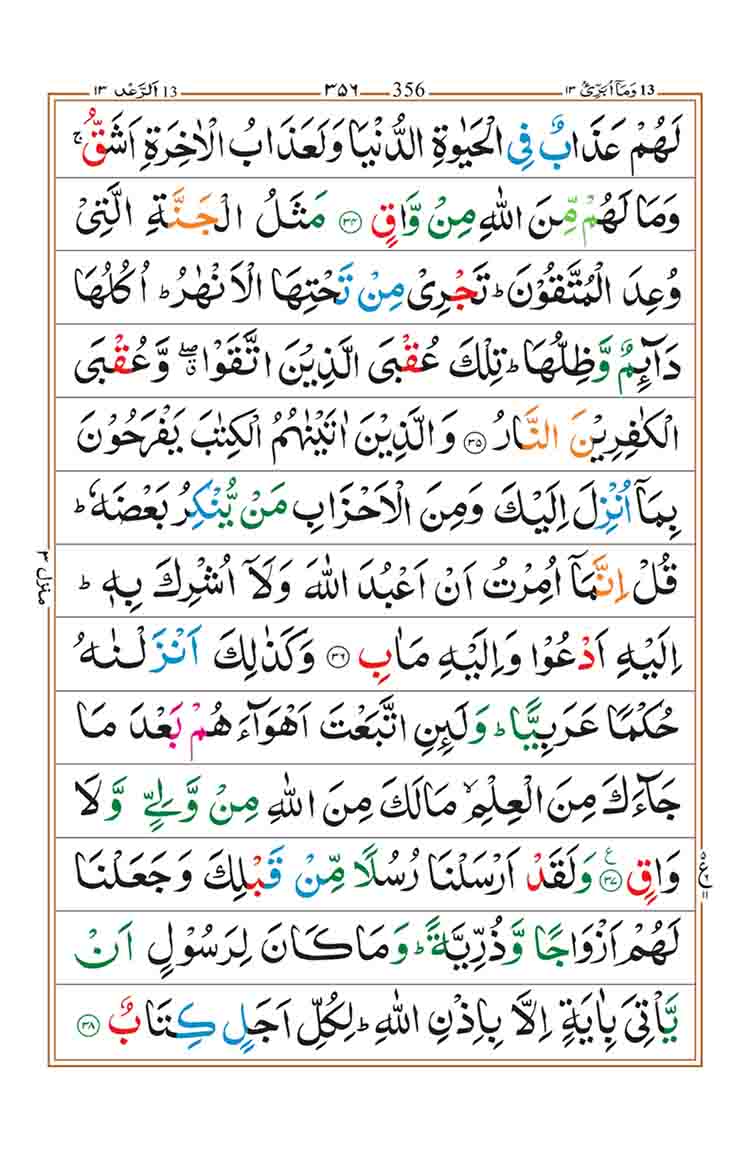 13 وَمَآ اُبَرِّئُ ۱۳
356 ۳۵۶
13 اَلرَّعْد ۱۳
لَهُمْ عَذَابٌ فِی الْحَیٰوةِ الدُّنْیَا وَلَعَذَابُ الْاٰخِرَةِ اَشَقُّ ۚ
وَمَا لَهُمْ مِّنَ اللّٰهِ مِنْ وَّاقٍ ۳۴ مَثَلُ الْجَنَّةِ الَّتِیْ
وُعِدَ الْمُتَّقُوْنَ ؕ تَجْرِیْ مِنْ تَحْتِهَا الْاَنْهٰرُ ؕ اُكُلُهَا
دَآئِمٌ وَّظِلُّهَا ؕ تِلْكَ عُقْبَی الَّذِیْنَ اتَّقَوْا ۖۗ وَّعُقْبَی
الْكٰفِرِیْنَ النَّارُ ۳۵ وَالَّذِیْنَ اٰتَیْنٰهُمُ الْكِتٰبَ یَفْرَحُوْنَ
بِمَاۤ اُنْزِلَ اِلَیْكَ وَمِنَ الْاَحْزَابِ مَنْ یُّنْكِرُ بَعْضَهٗ ؕ
قُلْ اِنَّمَاۤ اُمِرْتُ اَنْ اَعْبُدَ اللّٰهَ وَلَاۤ اُشْرِكَ بِهٖ ؕ
اِلَیْهِ اَدْعُوْا وَاِلَیْهِ مَاٰبِ ۳۶ وَكَذٰلِكَ اَنْزَلْنٰهُ
حُكْمًا عَرَبِیًّا ؕ وَلَئِنِ اتَّبَعْتَ اَهْوَآءَهُمْ بَعْدَ مَا
جَآءَكَ مِنَ الْعِلْمِ ۙ مَا لَكَ مِنَ اللّٰهِ مِنْ وَّلِیٍّ وَّلَا
وَاقٍ ۳۷ ع وَلَقَدْ اَرْسَلْنَا رُسُلًا مِّنْ قَبْلِكَ وَجَعَلْنَا
لَهُمْ اَزْوَاجًا وَّذُرِّیَّةً ؕ وَمَا كَانَ لِرَسُوْلٍ اَنْ
یَّاْتِیَ بِاٰیَةٍ اِلَّا بِاِذْنِ اللّٰهِ ؕ لِكُلِّ اَجَلٍ كِتَابٌ ۳۸
منزل ۳